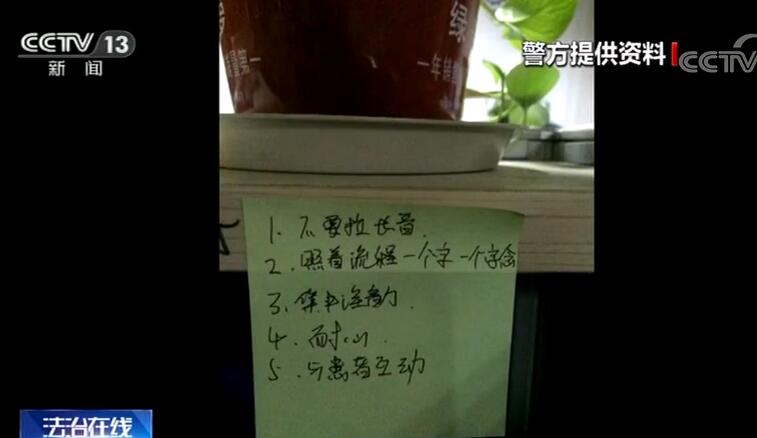 CCTV 13
新闻
警方提供资料
CCTV
绿
一年
1. 不要拉长音.
2. 照着流程一个字一个字念
3. 集中注意力.
4. 耐心.
5. 与患者互动
法治在线